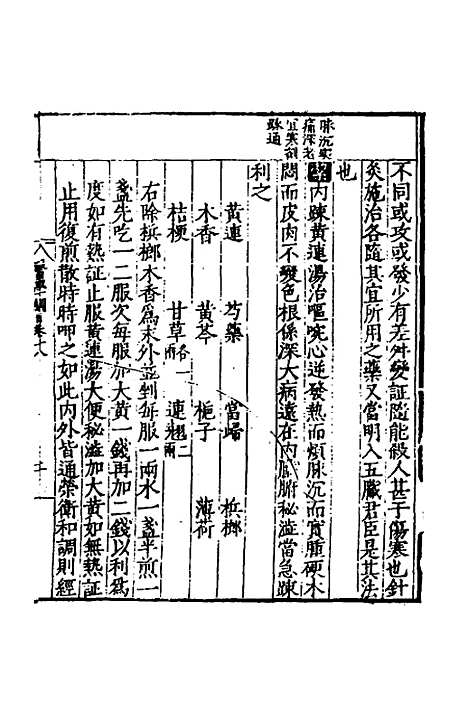 脉沉實
痛深者
宜寒劑
疎通
不同或攻或發少有差舛變証隨能殺人甚于傷寒也針
灸施治各隨其宜所用之藥又當明入五臟君臣是其法
也
內疎黃連湯治嘔啘心逆發熱而煩脉沉而實腫硬木
悶而皮肉不變色根係深大病遠在內臟腑秘澁當急疎
利之
黃連 芍藥 當歸 檳榔
木香 黃芩 梔子 薄荷
桔梗 甘草各一兩 連翹二兩
右除檳榔木香為末外並剉每服一兩水一盞半煎一
盞先吃一二服次每服加大黃一錢再加二錢以利為
度如有熱証止服黃連湯大便秘澁加大黃如無熱証
止用復煎散時時呷之如此內外皆通榮衛和調則經